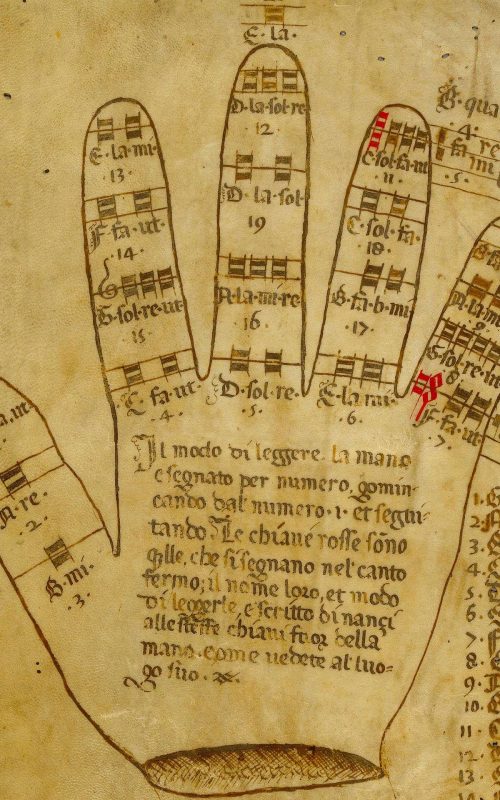 E · la ·
D · la · sol · re
· 12 ·
E · la · mi ·
· 13 ·
C · sol · fa · ut
· 11 ·
B · qua
· 4 ·
re
fa
mi
· 5 ·
D · la · sol ·
19
F · fa · ut ·
· 14 ·
C · sol · fa ·
· 18 ·
A · la · mi · re
· 16 ·
G · sol · re · ut
· 15 ·
B · fa · b · mi
· 17 ·
A · la · mi ·
9 ·
G · sol · re · u
8
C · fa · ut ·
· 4 ·
D · sol · re ·
· 5 ·
E · la · mi ·
· 6 ·
F · fa · ut
· 7 ·
a · ut ·
A · re ·
· 2 ·
B · mi ·
· 3 ·
Il modo di leggere la mano
e segnato per numero, comin-
cando dal numero · 1 · et segui-
tando. Le chiaue rosse sono
q̃lle, che si segnano nel canto
fermo; il nome loro, et modo
di leggerle, e scritto di nanci
alle stesse chiaui fuor della
mano · come uedete al luo-
go suo ·
1 ·
2 ·
3 ·
4 ·
5 ·
6 ·
7 ·
8 ·
9 ·
10 ·
11 ·
12 ·
13 ·
14